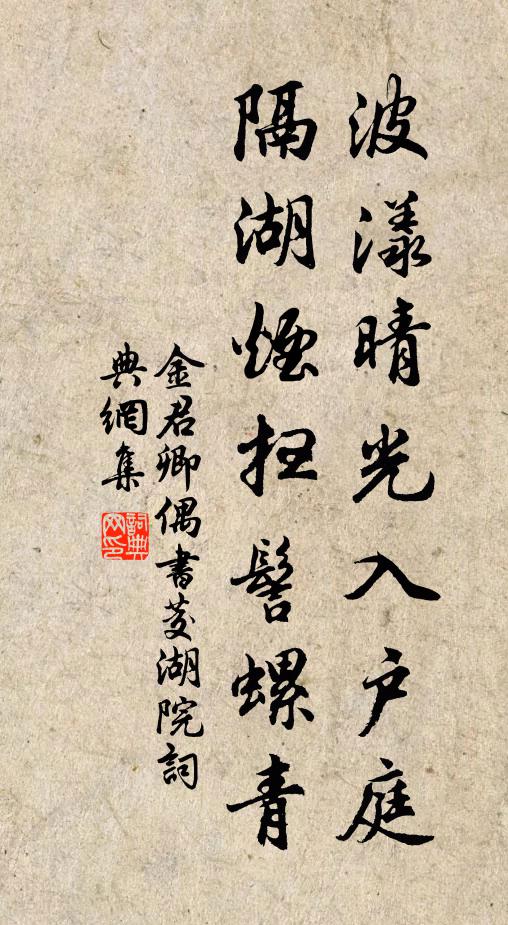 波漾晴光入户庭
隔湖煙扫髻螺青
金君卿偶書芰湖院詞
典網集
詞典
网印